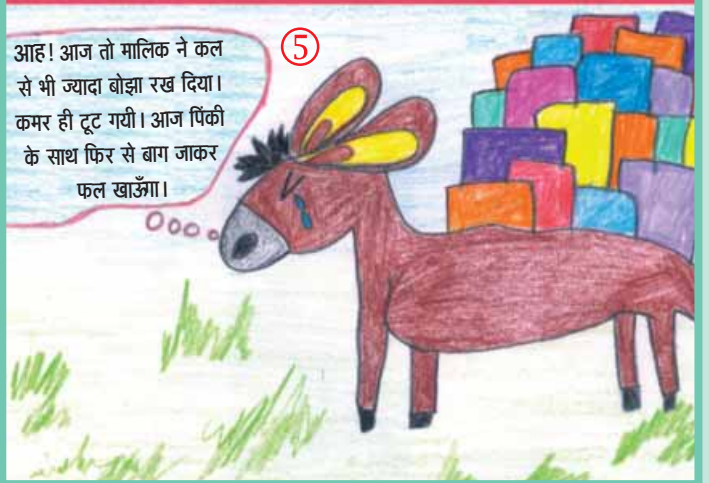 आह! आज तो मालिक ने कल
से भी ज्यादा बोझा रख दिया।
कमर ही टूट गयी। आज पिंकी
के साथ फिर से बाग जाकर
फल खाऊँगा।
⑤